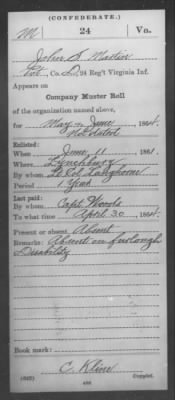 (CONFEDERATE.)
M 24 Va.
John S. Martin
Pvt, Co. D, 24 Reg't Virginia Inf.
Appears on
Company Muster Roll
of the organization named above,
for May & June, 1864.
Not dated
Enlisted:
When June 11, 1861.
Where Lynchburg
By whom Lt Col Langhorne
Period 1 Year
Last paid:
By whom Capt Woods
To what time April 30, 1864.
Present or absent Absent
Remarks: Absent on furlough
Disability
Book mark:
(642) E. Kline
Copyist.